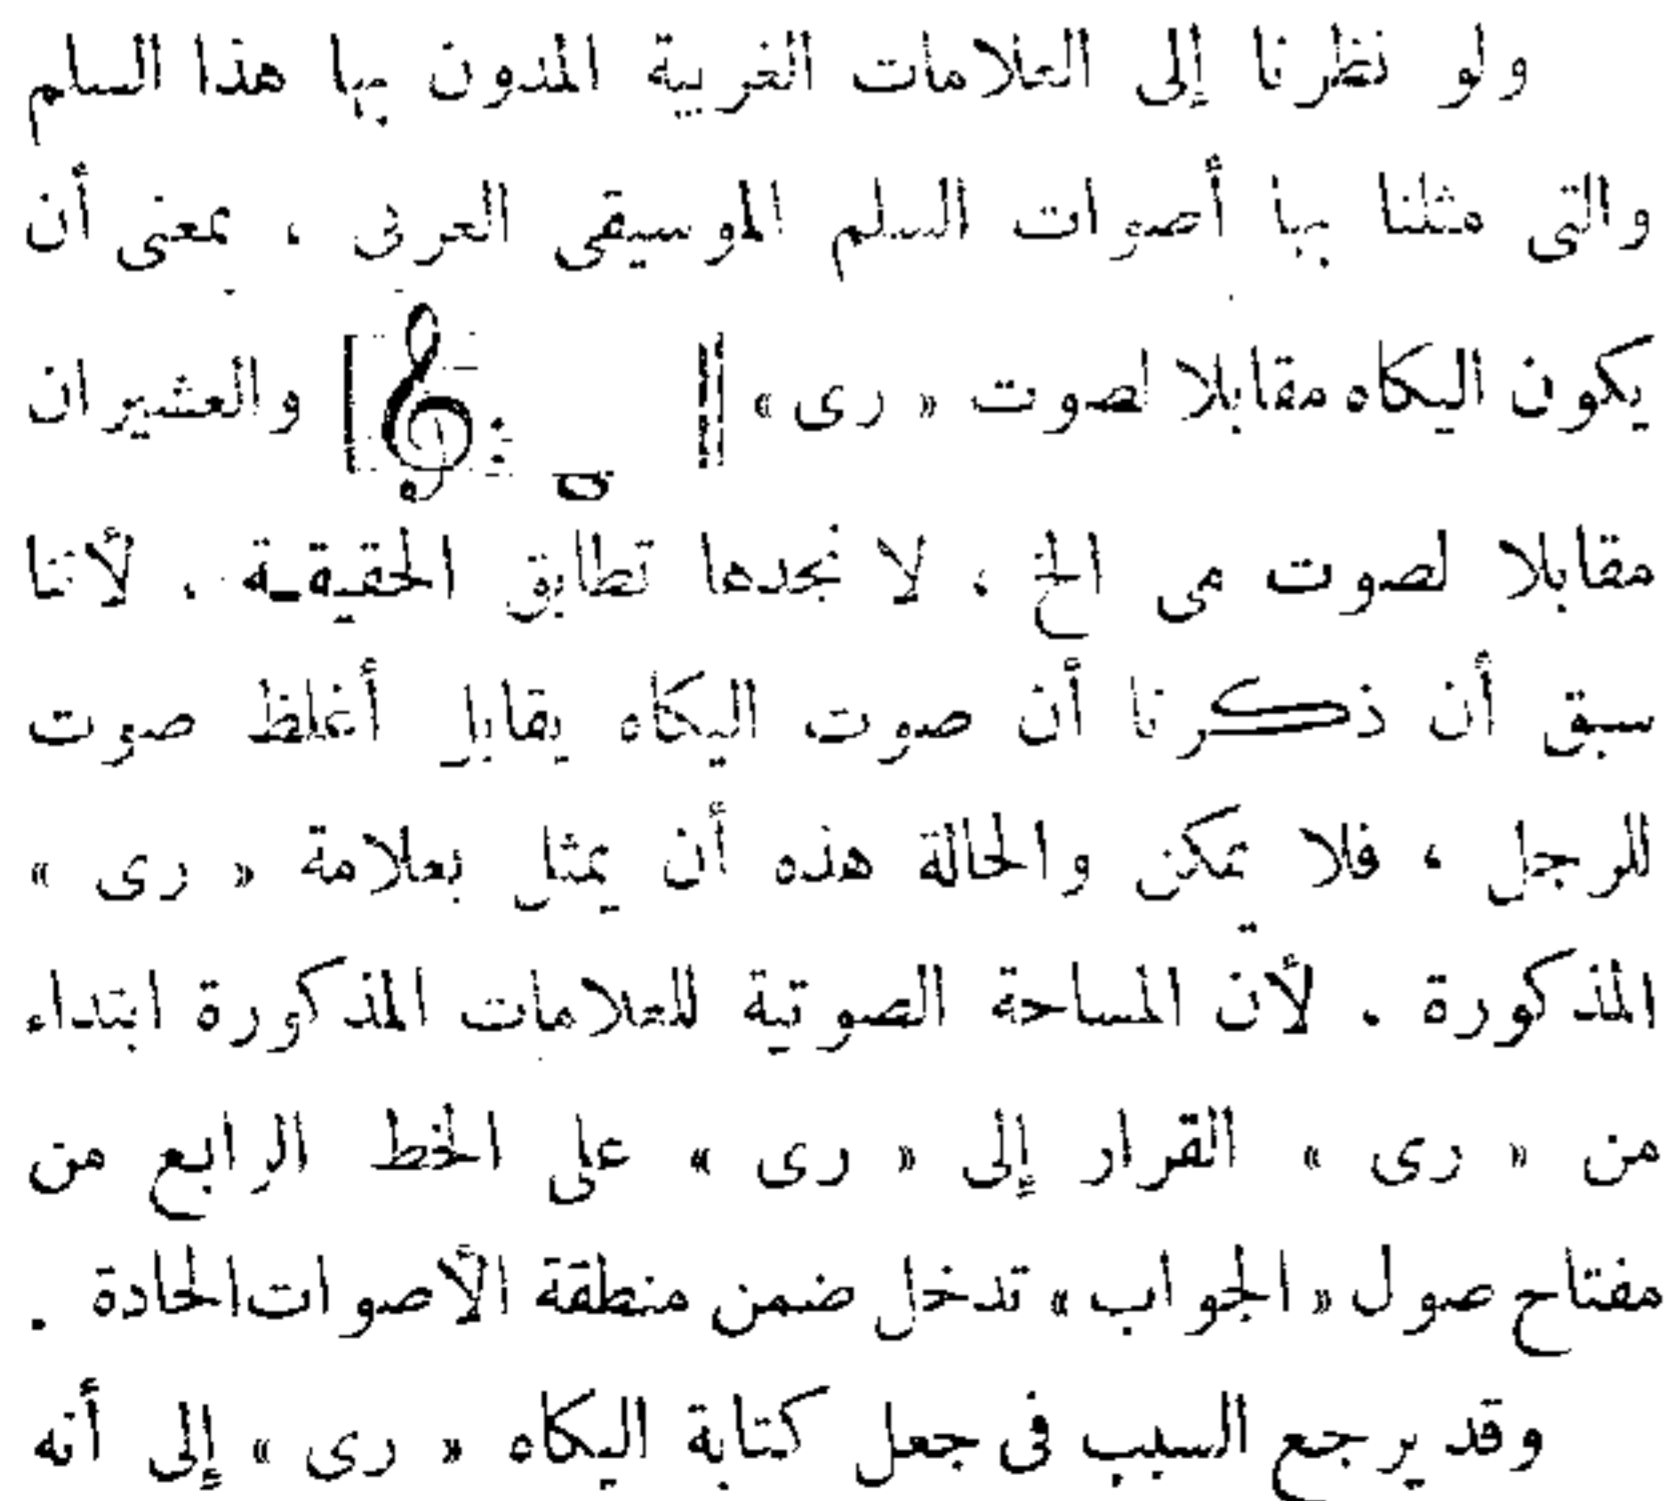 ولو نظرنا إلى العلامات الغربية المدون بها هذا السلم
والتى مثلنا بها أصوات السلم الموسيقى العربى ، بمعنى أن
يكون اليكاه مقابلا لصوت « رى » والعشيران
مقابلا لصوت مى الخ ، لا نجدها تطابق الحقيقـة . لأننا
سبق أن ذكرنا أن صوت اليكاه يقابل أغلظ صوت
للرجل ، فلا يمكن والحالة هذه أن يمثل بعلامة « رى »
المذكورة . لأن المساحة الصوتية للعلامات المذكورة ابتداء
من « رى » القرار إلى « رى » على الخط الرابع من
مفتاح صول « الجواب » تدخل ضمن منطقة الأصوات الحادة .
وقد يرجع السبب فى جعل كتابة اليكاه « رى » إلى أنه